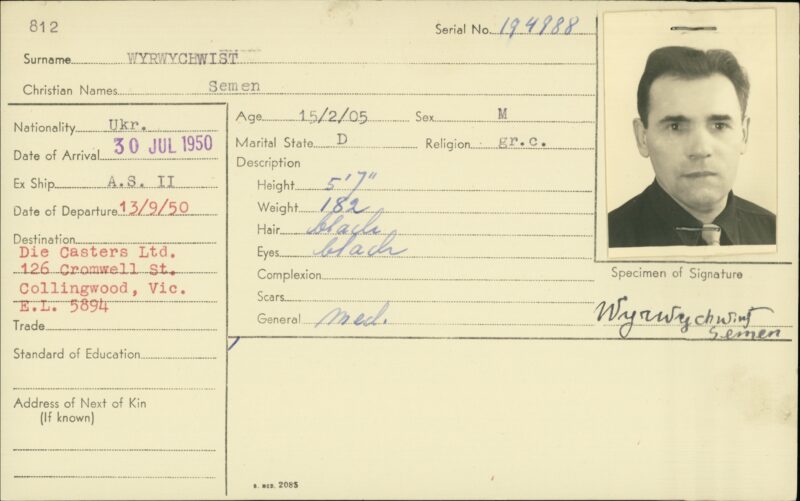 812
Serial No. 194988
Surname WYRWYCHWIST
Christian Names Semen
Nationality Ukr.
Date of Arrival 30 JUL 1950
Ex Ship A.S. II
Date of Departure 13/9/50
Destination
Die Casters Ltd.
126 Cromwell St.
Collingwood, Vic.
E.L. 5894
Trade
Standard of Education
Address of Next of Kin
(If known)
Age 15/2/05 Sex M
Marital State D Religion gr.c.
Description
Height 5'7"
Weight 182
Hair black
Eyes black
Complexion
Scars
General med.
Specimen of Signature
Wyrwychwist
Semen
2085